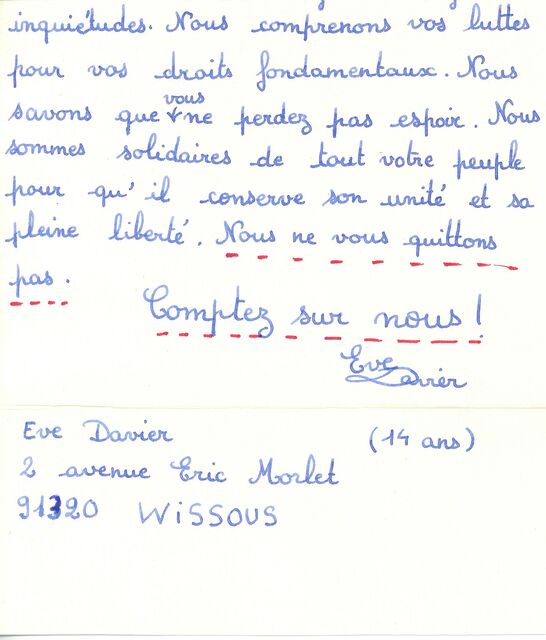 inquiétudes. Nous comprenons vos luttes
pour vos droits fondamentaux. Nous
savons que vous ne perdez pas espoir. Nous
sommes solidaires de tout votre peuple
pour qu'il conserve son unité et sa
pleine liberté. Nous ne vous quittons
pas.
Comptez sur nous !
Eve
Davier
Eve Davier (14 ans)
2 avenue Eric Morlet
91320 WiSSOUS